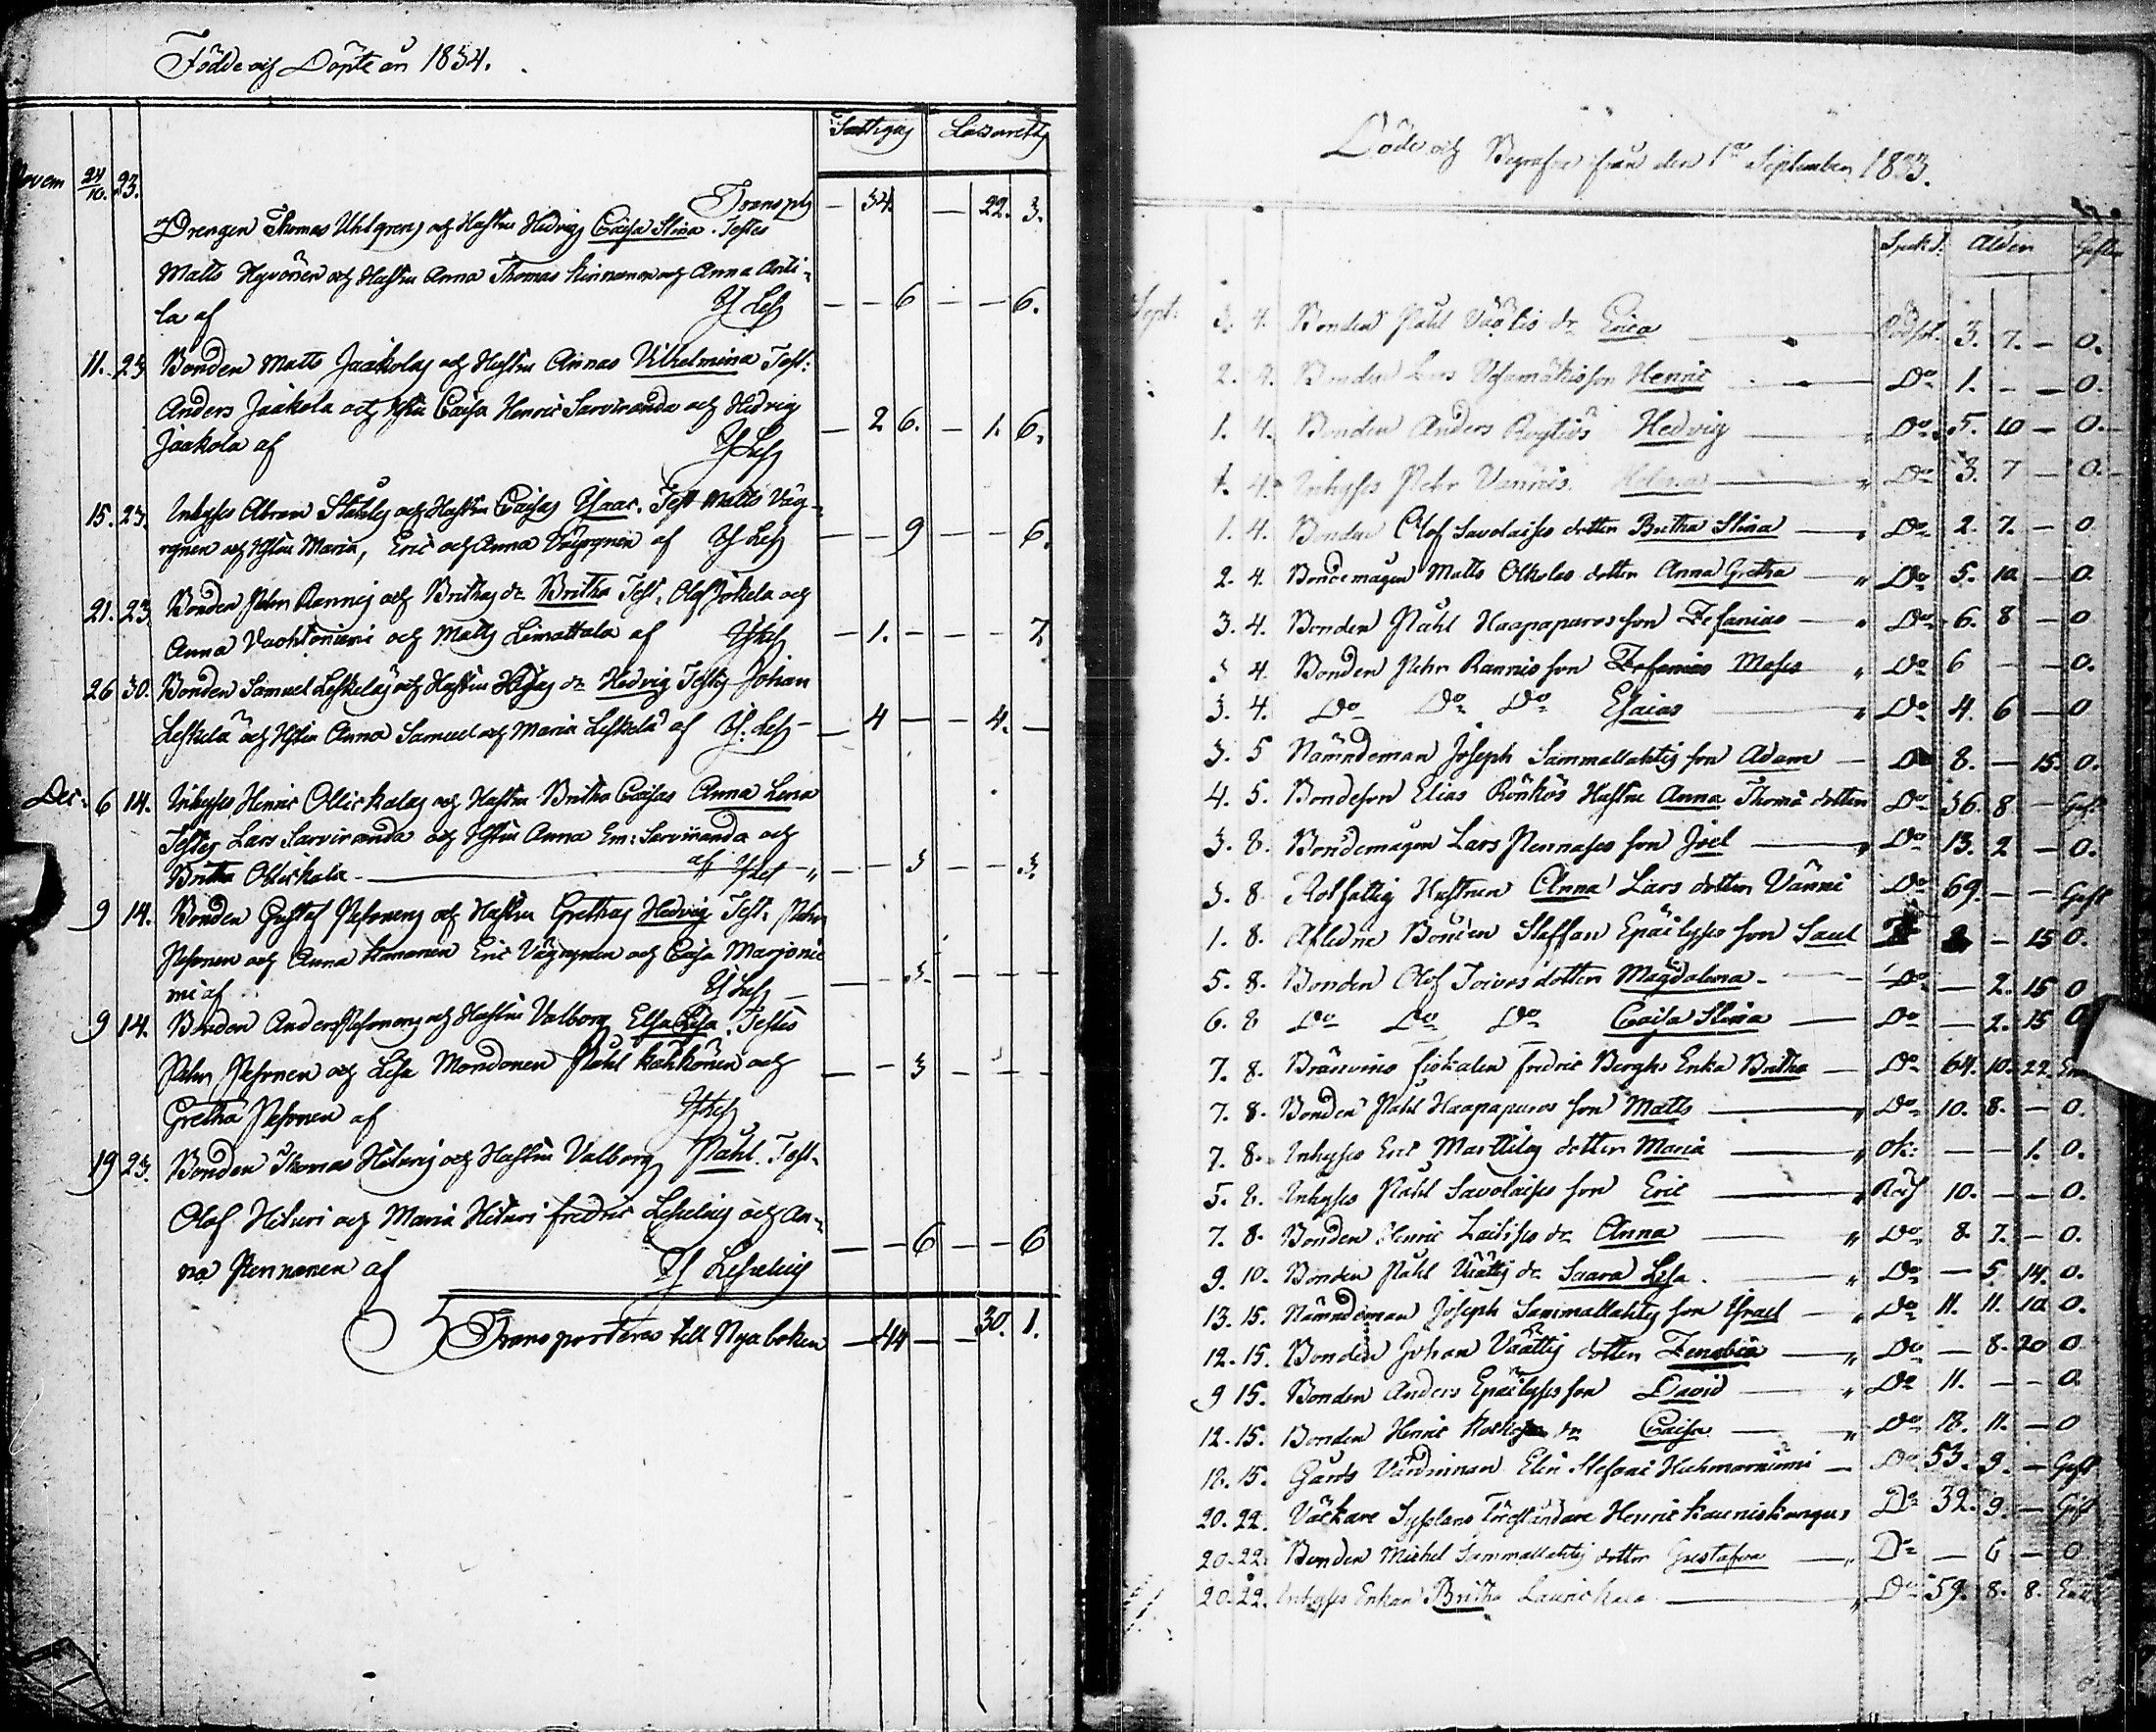 Födde och Döpte år 1834.
Fattigas Lazaretts
Novem 24/10. 23.
Transpt — 34. — 22. 3.
Drengen Thomas Uhlgrens och Hustru Hedvigs Caisa Stina. Testes
Matts Hyvönen och Hustru Anna Thomas Kinnanen och Anna Anti-
la af — — 6 — — 6.
11. 23 Bonden Matts Jaakolas och Hustru Annas Vilhelmina Test:
Anders Jaakola och Hstru Caisa Henric Sarviranda och Hedvig
Jaakola af — 2 6. — 1. 6.
15. 23. Inhyses Abram Ståhles och Hustru Caisas Isaac. Test Matts Väy-
rynen och Hstru Maria, Eric och Anna Väyrynen af — — 9 — — 6.
21. 23 Bonden Pehr Rannis och Brithas dr Britha Test. Olof Jokela och
Anna Vuohtoniemi och Matts Limattala af — 1. — — — 7.
26 30. Bonden Samuel Leskeläs och Hustru dr Hedvig Testes Johan
Leskelä och Hstru Anna Samuel och Maria Leskelä af — 4 — — 4. —
Dec. 6 14. Inhyses Henric Ollickalas och Hustru Britha Caisas Anna Lena
Testes Lars Sarviranda och Hstru Anna Em: Sarviranda och
Britha Ollickala — af — — 3 — — 3.
9 14. Bonden Gustaf Pesonens och Hustru Grethas Hedvig Test. Pehr
Pesonen och Anna Kananen Eric Väyrynen och Caisa Marjonie
mi af — — 3. — — —
9 14. Bonden Anders Pesonens och Hustru Valborg Elsa Caisa. Testes
Pehr Pesonen och Lisa Mondonen Påhl Kähkönen och — — 3 — — —
Gretha Pesonen af
19 23. Bonden Thomas Hituris och Hustru Valborgs Påhl. Test.
Olof Hituri och Maria Hituri Fredric Leskelius och An-
na Pennanen af — — 6 — — 6
Transporteras till Nya boken — 44 — — 30. 1.
Döde och Begrafne från den 1ra September 1833.
Sjukd: Ålder Gifter
Sept: 3. 4. Bonden Påhl Väätis dr Erica — Rödsot. 3. 7. — 0.
2. 4. Bonden Lars son Henric — Do 1. — — 0.
1. 4. Bonden Anders Hedvig — Do 5. 10 — 0.
1. 4. Inhyses Pehr Vännis Helena — Do 3. 7 — 0.
1. 4. Bonden Olof Savolaises dotter Britha Stina — Do 2. 7. — 0
2. 4. Bondemågen Matts Olkolas dotter Anna Gretha — Do 5. 10 — 0.
3. 4. Bonden Påhl Haapapuros son Zefanias — Do 6. 8 — 0
3 4. Bonden Pehr Rannis son Zefanias Moses Do 6 — — 0.
3. 4. Do Do Do Esaias — Do 4. 6 — 0
3. 5 Nämndeman Joseph Sammallahtis son Adam — Do 8. — 15. 0.
4. 5. Bondeson Elias Rönkös Hustru Anna Thomä dotter Do 36. 8 — Gift
3. 8. Bondemågen Lars Pennases son Joel — Do 13. 2 — 0.
3. 8. Rotfattig Hustrun Anna Lars dotter Vänni Do 69. — — Gift
1. 8. Aflidne Bonden Staffan Epäilyses son Saul — 15 0.
5. 8. Bonden Olof Toivos dotter Magdalena — Do — 2. 15 0
6. 8 Do Do Do Caisa Stina — Do — 2. 15 0
7. 8. Bränvins fiskalen Fredric Berghs Enka Britha — Do 64. 10. 22. En
7. 8. Bonden Påhl Haapapuros son Matts — Do 10. 8. — 0.
7. 8. Inhyses Eric Marttilas dotter Maria — Ok: — — 1. 0.
5. 8. Inhyses Påhl Savolaises son Eric — Röds 10. — — 0.
7. 8. Bonden Henric dr Anna — Do 8. 7. — 0.
9. 10. Bonden Påhl Väättis dr Saara Lisa. — Do — 5. 14. 0.
13. 15. Nämndeman Joseph Sammallahtis son Israel — Do 11. 11. 10 0.
12. 15. Bonden Johan Väättis dotter Zenobia — Do — 8. 20 0
9 15. Bonden Anders Epäilyses son David — Do 11. — — 0.
12. 15. Bonden Henric dr Caisa — Do 18. 11. — 0
12. 15. Gårds Värdinnan Elin Stefani Huhmarniemi — Do 53. 9. — Gift
20. 22. Väckare Sysslans Föreståndare Henric Kauniskangas Do 32. 9. — Gift
20. 22. Bonden Michel Sammallahtis dotter Gustafva — Do — 6 — 0
20. 22. Inhyses Enkan Britha Laurickala — Do 59. 8. 8. Enk